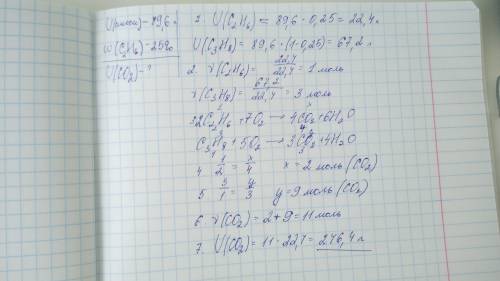 U(смеси) = 89,6 л
W(C2H6) - 25%
U(CO2) - ?
1 U(C2H6) = 89,6 · 0,25 = 22,4 л
U(C3H8) = 89,6 · (1-0,25) = 67,2 л
2. γ(C2H6) = 22,4/22,4 = 1 моль
γ(C3H8) = 67,2/22,4 = 3 моль
1 x
3 2C2H6 + 7O2 → 4CO2 + 6H2O
2 4
3 y
C3H8 + 5O2 → 3CO2 + 4H2O
1 3
4 1/2 = x/4 x = 2 моль (CO2)
5 3/1 = y/3 y = 9 моль (CO2)
6 γ(CO2) = 2 + 9 = 11 моль
7. U(CO2) = 11 · 22,4 = 246,4 л